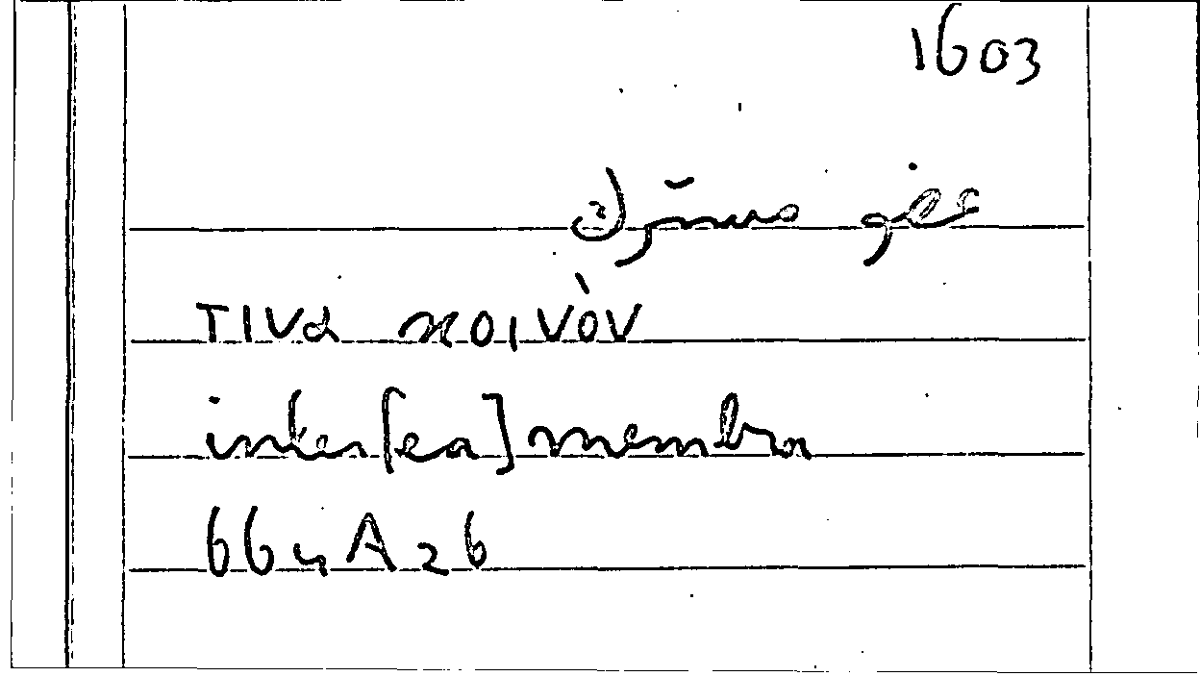 1603
τινα κοινὸν
inter[ea] membra
664A26